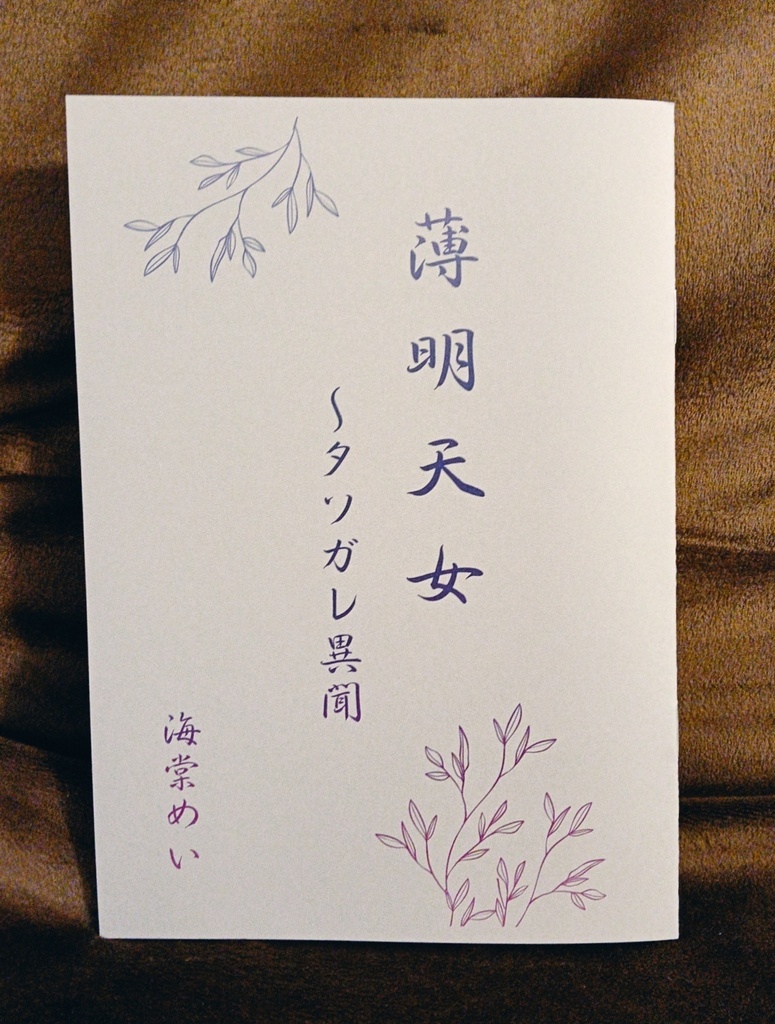 薄明天女
～タソガレ異聞
海棠めい